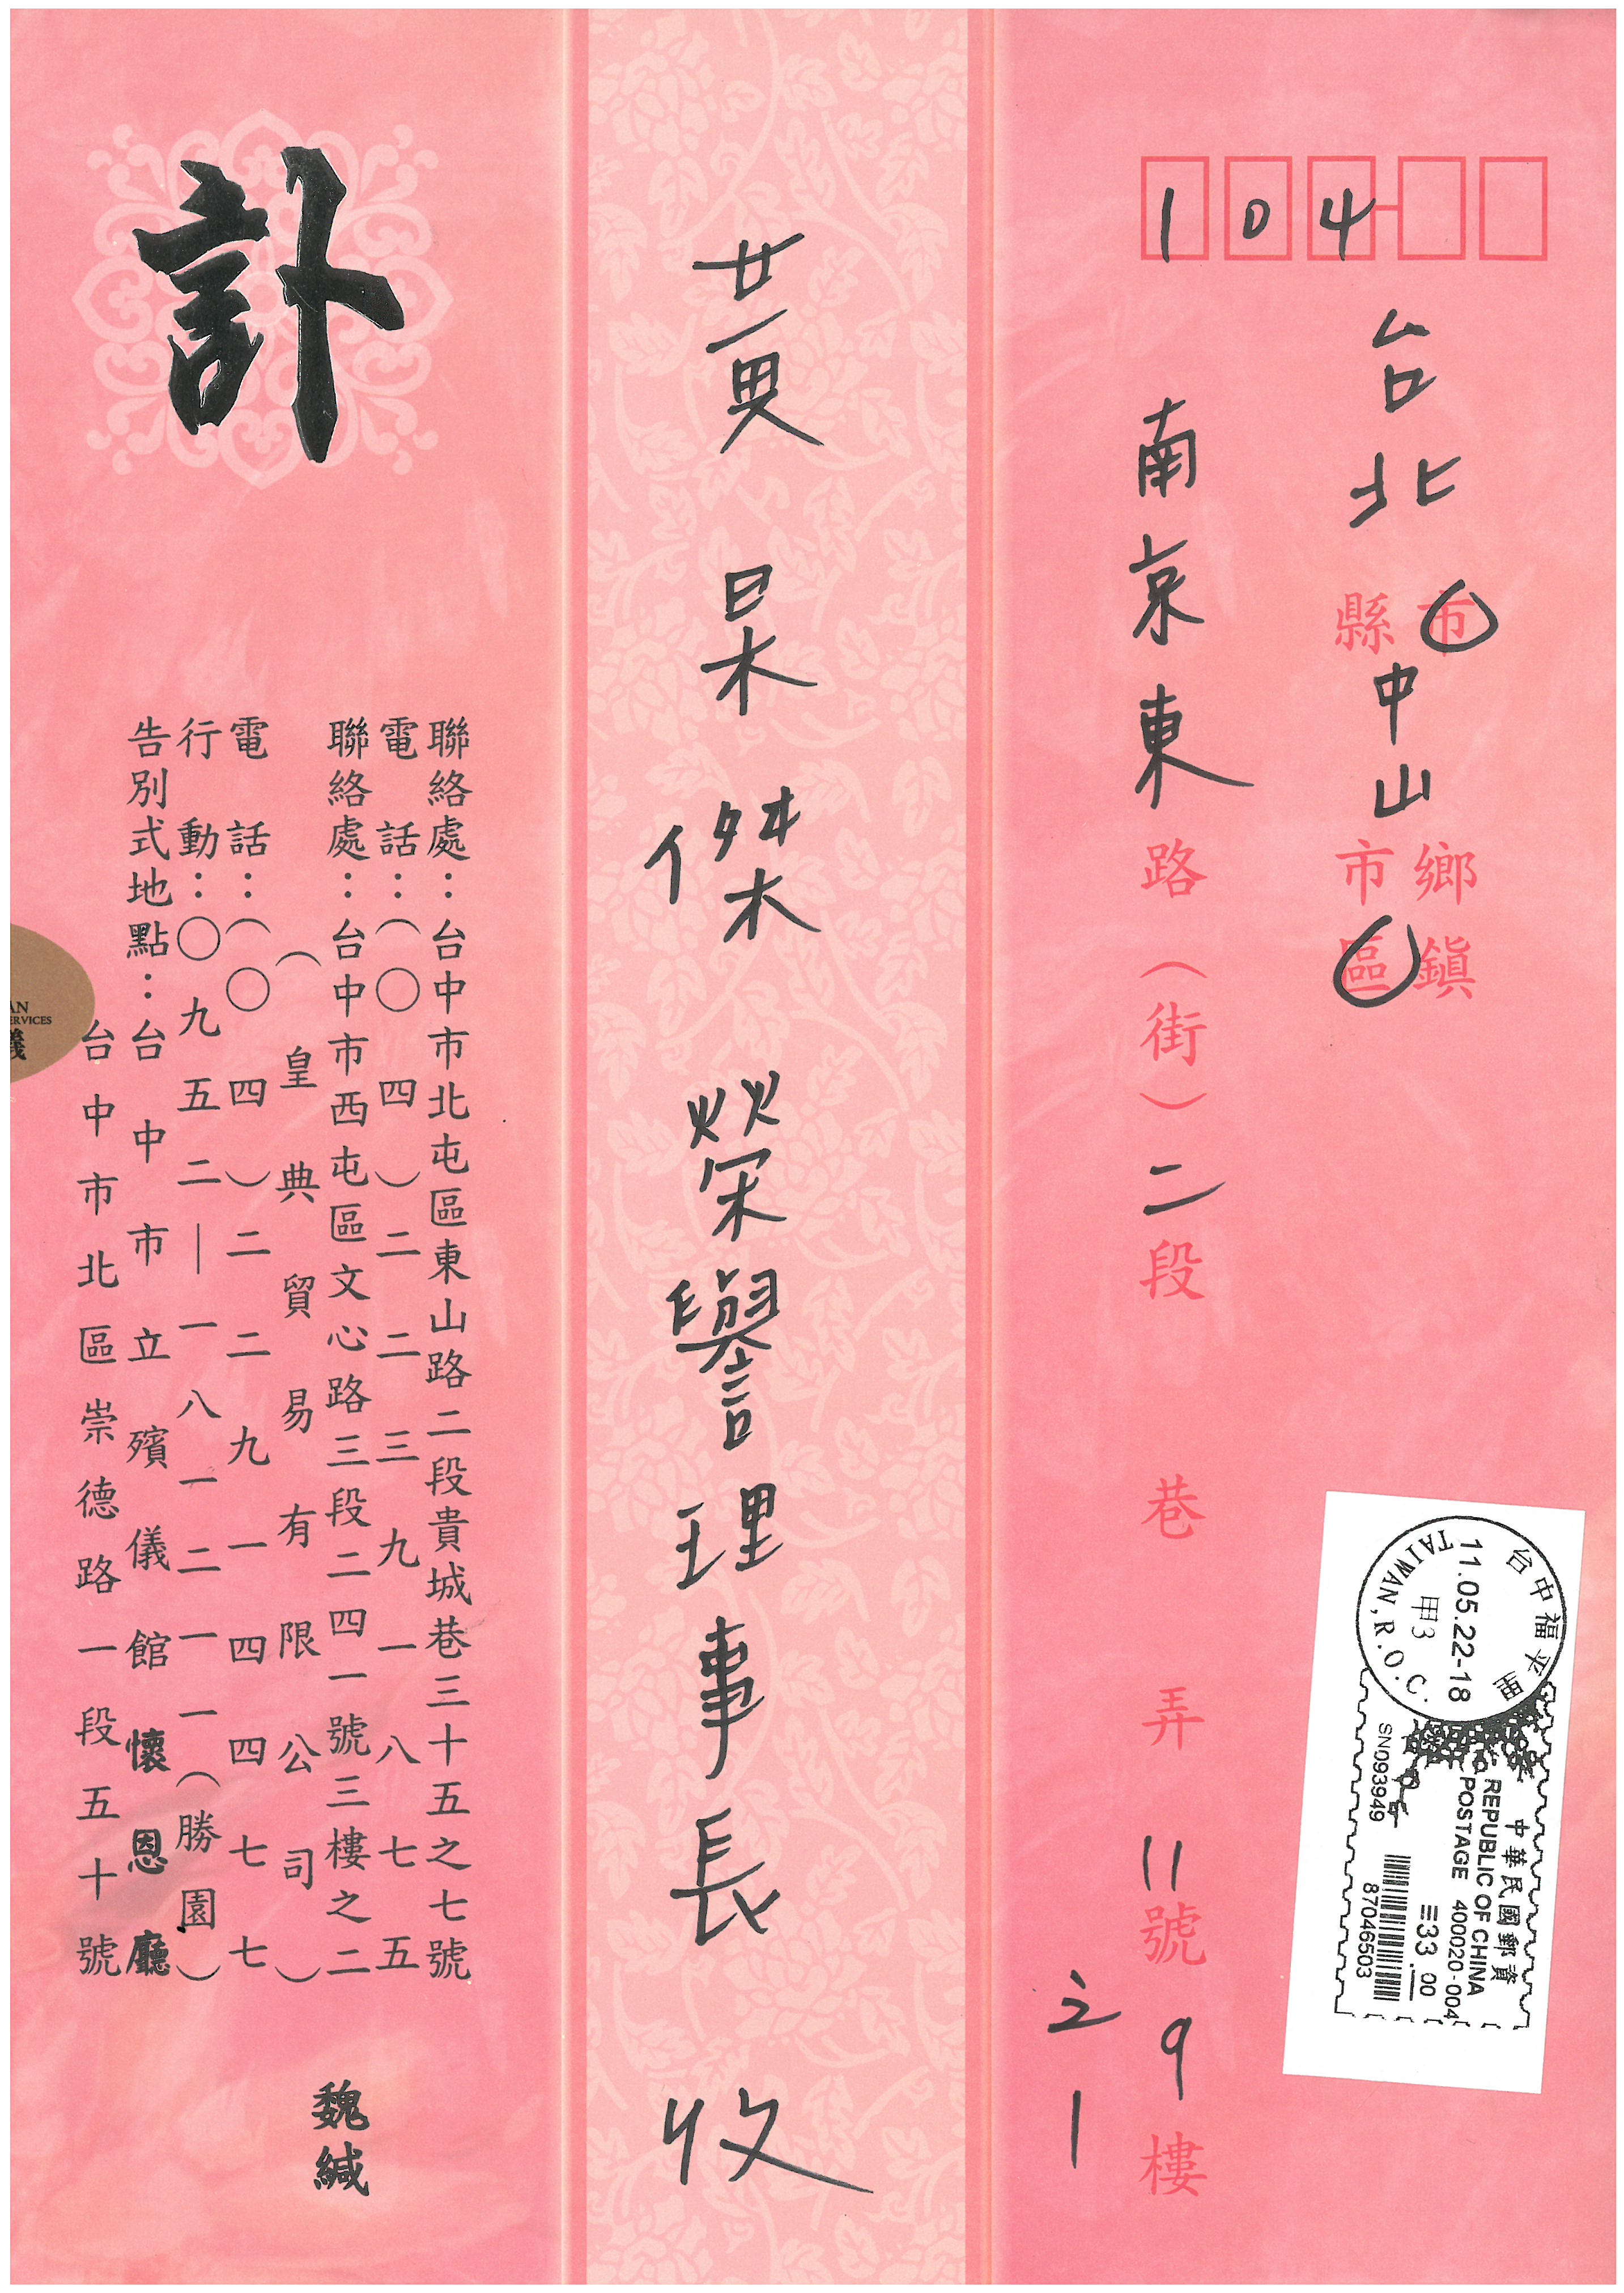 104
台北市縣
中山鄉鎮市區
南京東路（街）二段 巷 弄 11號9樓
之1
黃杲傑榮譽理事長 收
訃
聯絡處：台中市北屯區東山路二段貴城巷三十五之七號
電話：（〇四）二二三九一八七五
聯絡處：台中市西屯區文心路三段二四一號三樓之二
（皇典貿易有限公司）
電話：（〇四）二二九一四四七七
行動：〇九五二—一八一二一一（勝園）
告別式地點：台中市立殯儀館懷恩廳
台中市北區崇德路一段五十號
魏緘
台中福平里
11.05.22-18
甲3
TAIWAN, R.O.C.
中華民國郵資
REPUBLIC OF CHINA
POSTAGE 400020-004
≡33.00
SN093949
87046503
AN
ERVICES
儀